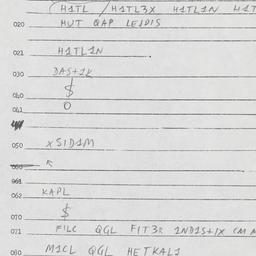 HATL / HATL3X HATL1N HAT
020 MUT QAP LEIDIS
021 HATL1N
030 DAS+1K
$
040
041 O
050 xSID1M
060
061
062 KAPL
070 $
071 FILC QGL FIT3R 1NDIS+IX CM A
080 M1CL QGL HETKAL1